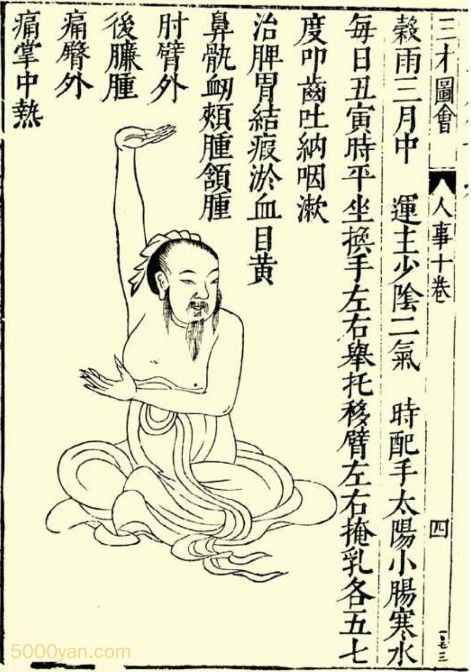 三才圖會
人事十卷
四
穀雨三月中　運主少陰二氣　時配手太陽小腸寒水
每日丑寅時平坐換手左右舉托移臂左右掩乳各五七
度叩齒吐納咽漱
治脾胃結瘕淤血目黃
鼻鼽衂頰腫頷腫
肘臂外
後臁腫
痛臂外
痛掌中熱
5000yan.com